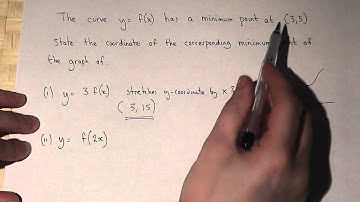 The curve y = f(x) has a minimum point at (3,5)
State the coordinates of the corresponding minimum of
the graph of.
(i) y = 3 f(x) stretches y-coordinate by x
(3, 15)
(ii) y = f(2x)